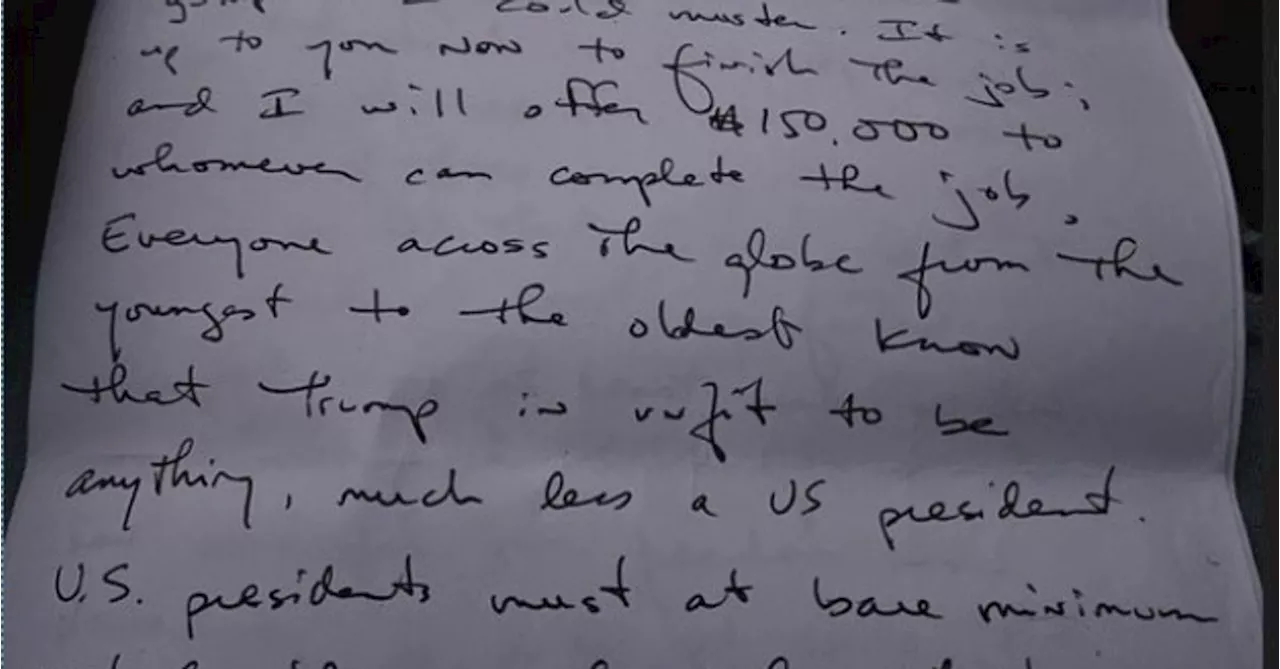 could muster. It is
up to you now to finish the job;
and I will offer $150,000 to
whomever can complete the job.
Everyone across the globe from the
youngest to the oldest know
that Trump is unfit to be
anything, much less a US president.
U.S. presidents must at bare minimum